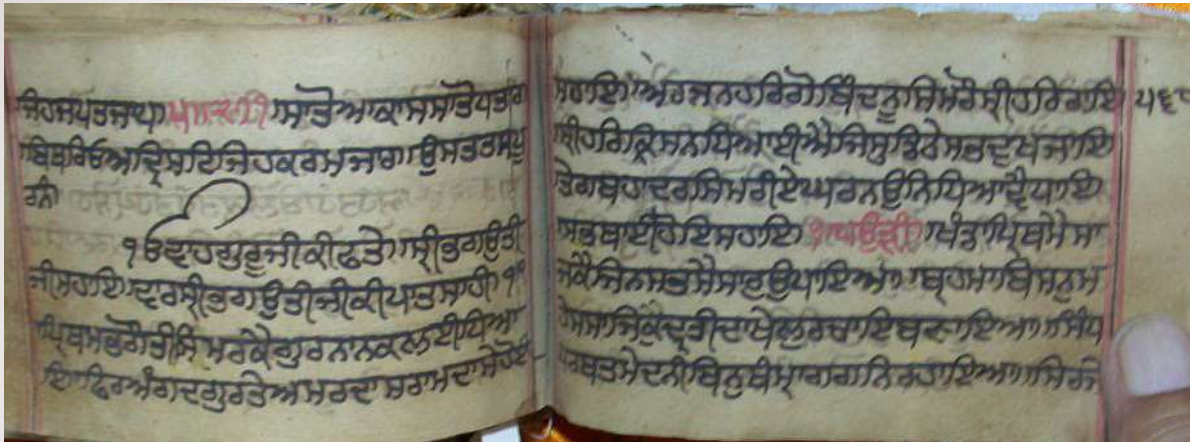 ਜਿਹਜਪਤਜਾਪ॥ ॥ਸਾਤੋਆਕਾਸਸਾਤੋਪਤਾਰ
ਬਿਥਰਿਓਅਦ੍ਰਿਸਟਿਜਿਹਕਰਮਜਾਰ॥ਉਸਤਤਸੰਪੂ
ਰਨੰ
੧ਓਵਾਹਗੁਰੂਜੀਕੀਫਤੇ॥ਸ੍ਰੀਭਗਉਤੀ
ਜੀਸਹਾਇ॥ਵਾਰਸ੍ਰੀਭਗਉਤੀਜੀਕੀਪਾਤਸਾਹੀ॥੧੦
ਪ੍ਰਿਥਮਭਗੌਤੀਸਿਮਰਕੈਗੁਰਨਾਨਕਲਈਧਿਆ
ਇ॥ਫਿਰਅੰਗਦਗੁਰਤੇਅਮਰਦਾਸਰਾਮਦਾਸੇਹੋਈ
ਸਹਾਇ॥ਅਰਜਨਹਰਿਗੋਬਿੰਦਨੂਸਿਮਰੌਸ੍ਰੀਹਰਿਰਾਇ
ਸ੍ਰੀਹਰਿਕ੍ਰਿਸਨਧਿਆਈਐਜਿਸੁਡਿਠੇਸਭਦੁਖਜਾਇ
ਤੇਗਬਹਾਦਰਸਿਮਰੀਏਘਰਨਉਨਿਧਿਆਵੈਧਾਇ
ਸਭਥਾਈਹੋਇਸਹਾਇ॥੧॥ਪਉੜੀ॥ਖੰਡਾਪ੍ਰਿਥਮੈਸਾ
ਜਕੈਜਿਨਸਭਸੈਸਾਰੁਉਪਾਇਆ॥ਬ੍ਰਹਮਾਬਿਸਨੁਮ
ਹੇਸਸਾਜਿਕੈਕੁਦ੍ਰਤੀਦਾਖੇਲੁਰਚਾਇਬਣਾਇਆ॥ਸਿੰਧ
ਪਰਬਤਮੇਦਨੀਬਿਨੁਥੰਮ੍ਹਾਗਗਨਿਰਹਾਇਆ॥ਸਿਰਜੇ